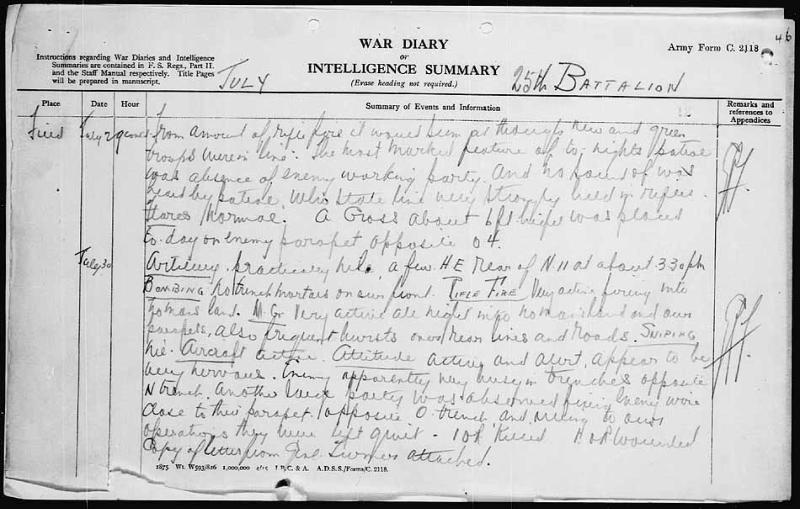 46
WAR DIARY
or
INTELLIGENCE SUMMARY
(Erase heading not required.)
Army Form C. 2118
Instructions regarding War Diaries and Intelligence
Summaries are contained in F. S. Regs., Part II.
and the Staff Manual respectively. Title Pages
will be prepared in manuscript.
JULY
25th BATTALION
Place Date Hour Summary of Events and Information Remarks and references to Appendices
Field July 29 from amount of rifle fire it would seem as though new and green
troops were in line. The most marked feature of to-nights patrol
was absence of enemy working party. And no sound of was
heard by patrol, who state line very strongly held in rifles.
Flares Normal. A Cross about 6ft high was placed
to-day on enemy parapet opposite O 4.
July 30 Artillery practically nil, a few H.E. rear of N.11 at about 3.30 pm
BOMBING No trench mortars on our front. RIFLE FIRE Very active firing into
no mans land. M. G. Very active all night into no mans land and our
parapets, also frequent bursts on our rear lines and roads. SNIPING
nil. Aircraft active. Attitude active and alert, appear to be
very nervous. Enemy apparently very busy in trenches opposite
N trench. Another party was observed fixing enemy wire
close to their parapet opposite O. trench and owing to our
operations they were left quiet - 1 OR Killed OR Wounded
Copy of letter from Genl Turner attached.
1875 Wt. W593/826 1,000,000 4/15 J.B.C. & A. A.D.S.S./Forms/C. 2118.